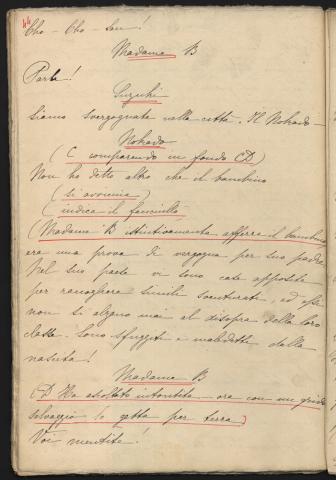 44
Cho-Cho-San!
Madama B
Parla!
Suzuki
Siamo svergognate nella città. Il Nakodo
Nakodo
(C comparendo in fondo D)
Non ho detto altro che il bambino
(si avvicina)
(indica il fanciullo
(Madama B istintivamente afferra il bambino
era una prova di vergogna per suo padre
Nel suo paese vi sono case apposite
per raccogliere simili sventurati, ed essi
non si alzano mai al disopra della loro
classe. Sono sfuggiti e maledetti dalla
nascita!
Madama B
(D Ha ascoltato intontita - ora con un grido
selvaggio lo getta per terra)
Voi mentite!